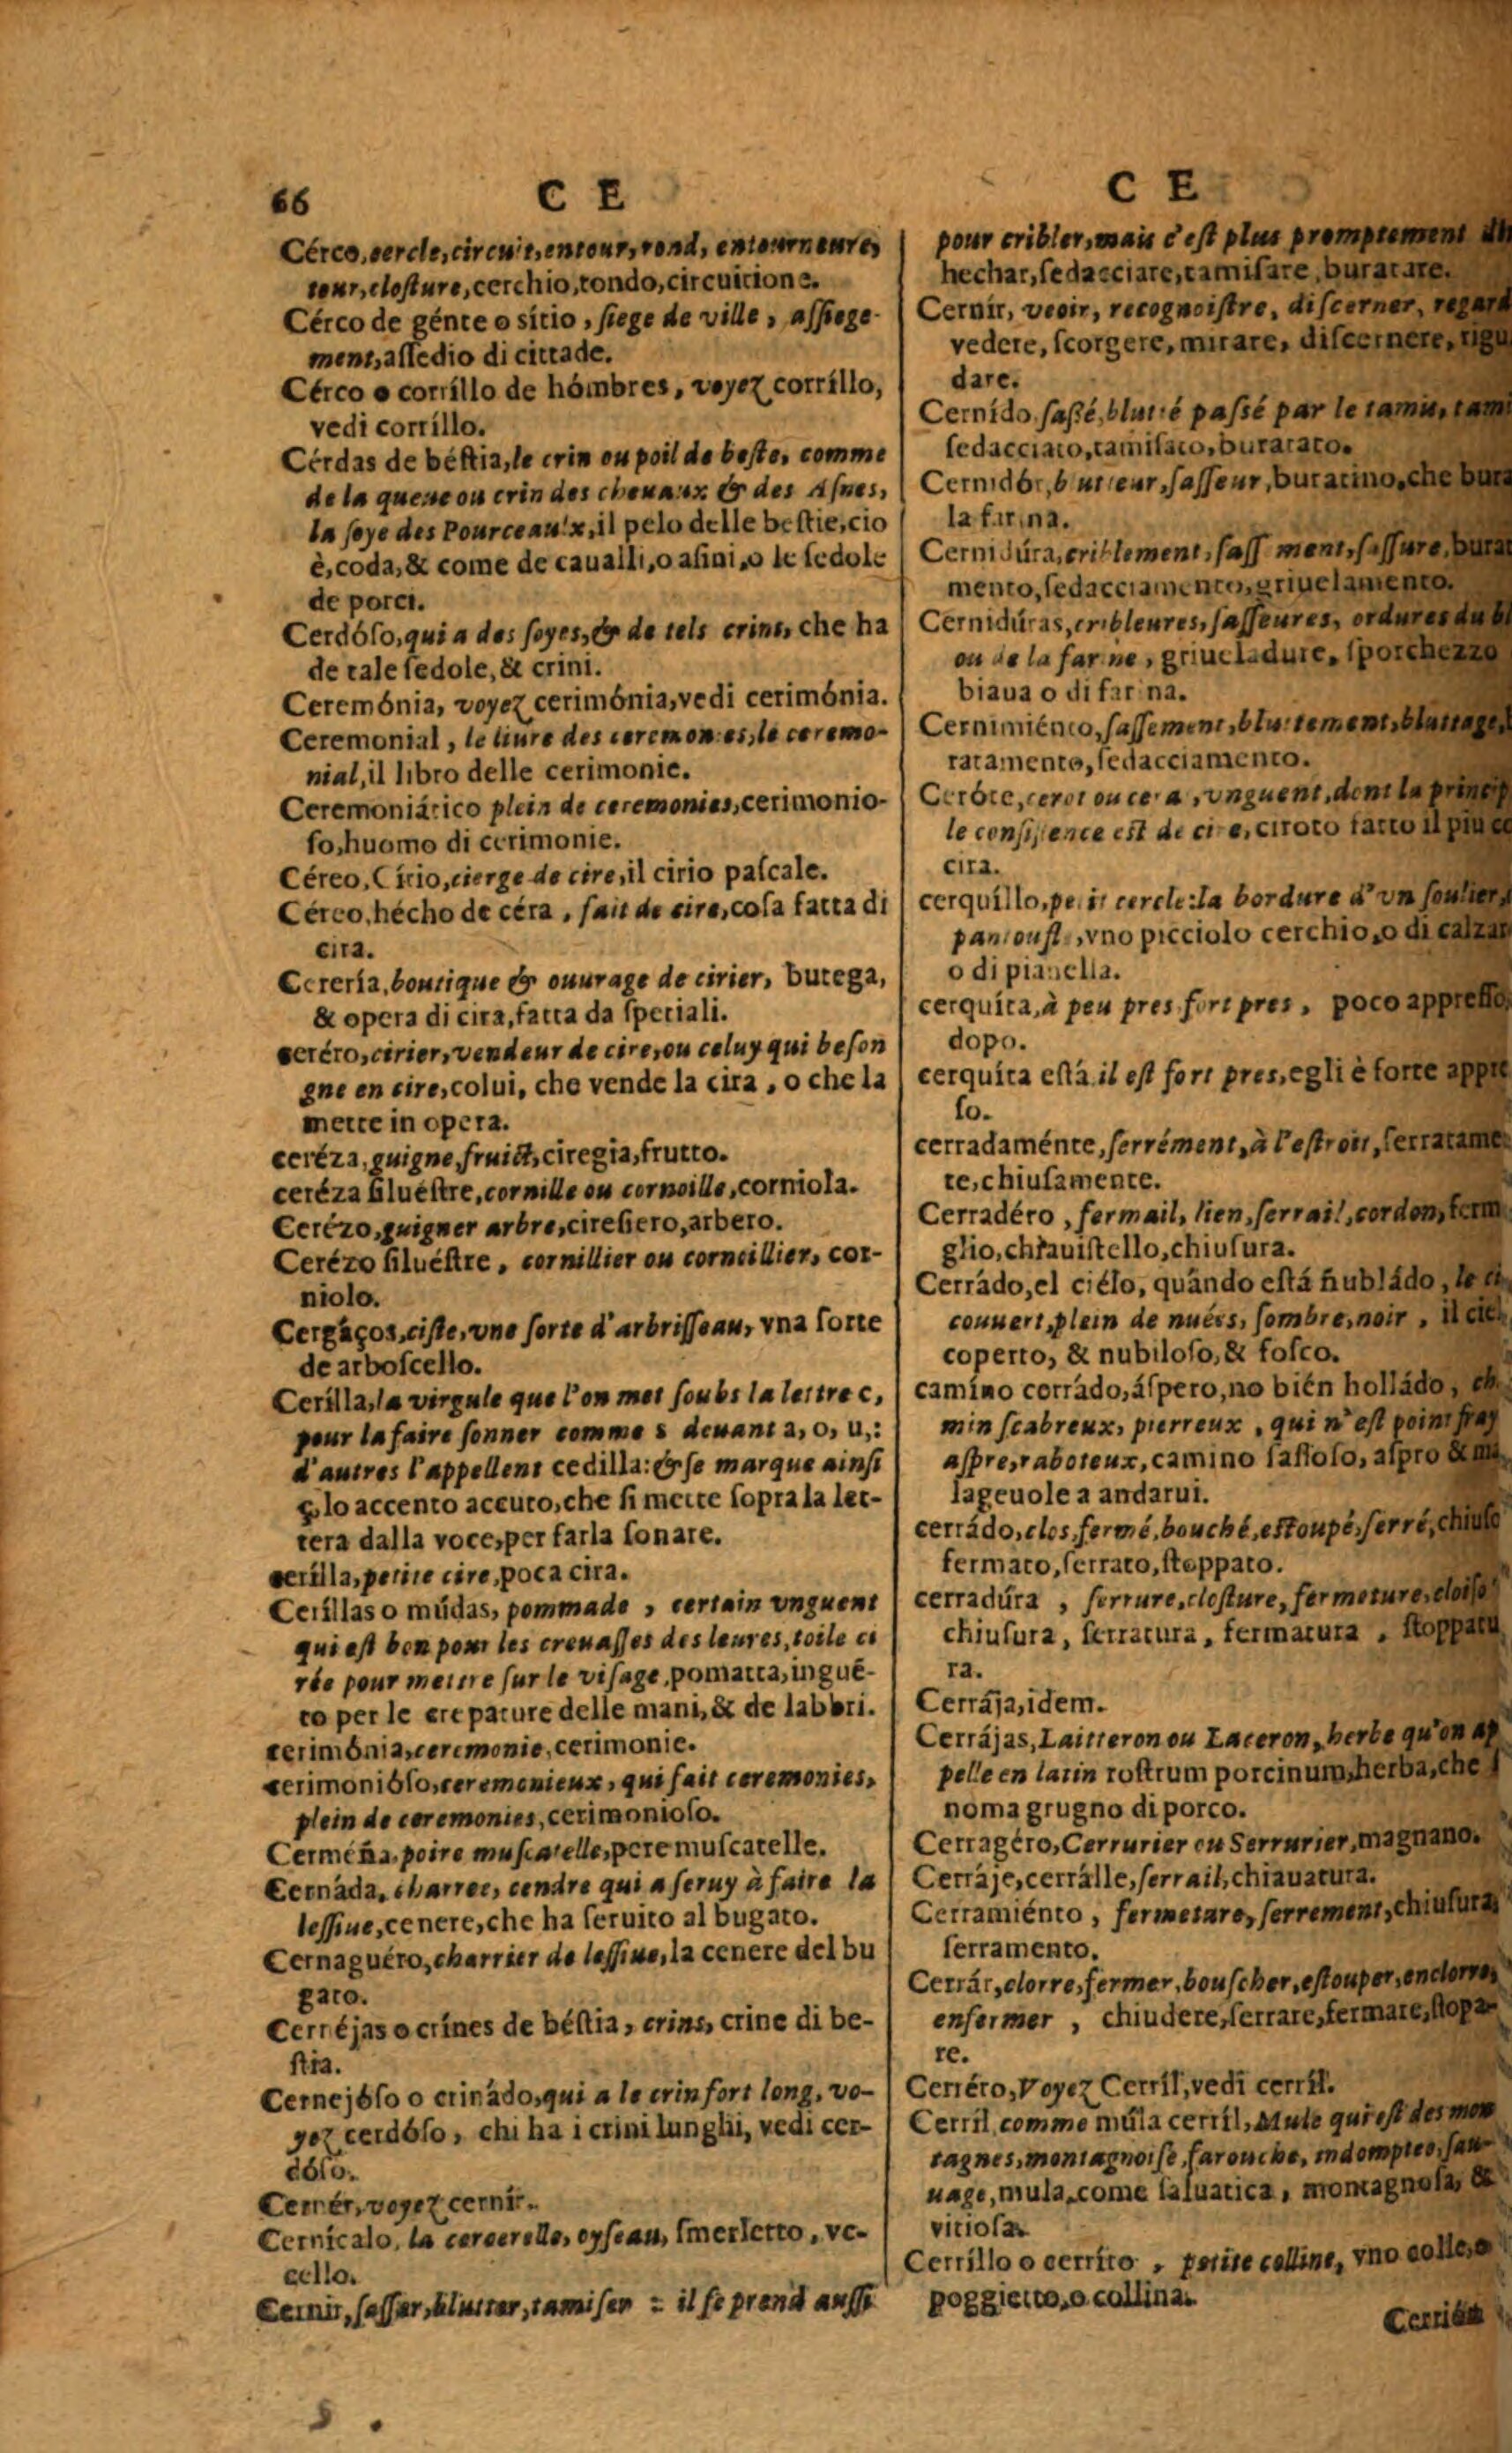 66 C E
Cérco, cercle, circuit, entour, rond, entourneure,
tour, closture, cerchio, tondo, circuitione.
Cérco de génte o sítio, ſiege de ville, aſſiege-
ment, aſſedio di cittade.
Cérco o corríllo de hómbres, voyez corríllo,
vedi corríllo.
Cérdas de béſtia, le crin ou poil de beſte, comme
de la queue ou crin des cheuaux & des Aſnes,
la ſoye des Pourceaux, il pelo delle beſtie, cio
è, coda, & come de caualli, o aſini, o le ſedole
de porci.
Cerdóſo, qui a des ſoyes, & de tels crins, che ha
de tale ſedole, & crini.
Ceremónia, voyez cerimónia, vedi cerimónia.
Ceremonial, le liure des ceremonies, le ceremo-
nial, il libro delle cerimonie.
Ceremoniático plein de ceremonies, cerimonio-
ſo, huomo di cerimonie.
Céreo, Cirio, cierge de cire, il cirio paſcale.
Céreo, hécho de céra, fait de cire, coſa fatta di
cira.
Cerería, boutique & ouurage de cirier, butega,
& opera di cira, fatta da ſpetiali.
ceréro, cirier, vendeur de cire, ou celuy qui beſon
gne en cire, colui, che vende la cira, o che la
mette in opera.
ceréza, guigne, fruict, ciregia, frutto.
ceréza ſiluéſtre, cornille ou cornoille, corniola.
Cerézo, guigner arbre, cireſiero, arbero.
Cerézo ſiluéſtre, cornillier ou corneillier, cor-
niolo.
Cergáços, ciſte, vne ſorte d'arbriſſeau, vna ſorte
de arboſcello.
Cerílla, la virgule que l'on met ſoubs la lettre c,
pour la faire ſonner comme s deuant a, o, u,:
d'autres l'appellent cedilla: & ſe marque ainſi
ç, lo accento accuto, che ſi mette ſopra la let-
tera dalla voce, per farla ſonare.
cerílla, petite cire, poca cira.
Ceríllas o múdas, pommade, certain vnguent
qui eſt bon pour les creuaſſes des leures, toile ci
rée pour mettre ſur le viſage, pomatta, inguē-
to per le crepature delle mani, & de labbri.
cerimónia, ceremonie, cerimonie.
cerimonióſo, ceremonieux, qui fait ceremonies,
plein de ceremonies, cerimonioſo.
Cerméña, poire muſcatelle, pere muſcatelle.
Cernáda, charree, cendre qui a ſeruy à faire la
leſſiue, cenere, che ha ſeruito al bugato.
Cernaguéro, charrier de leſſiue, la cenere del bu
gato.
Cernéjas o crínes de béſtia, crins, crine di be-
ſtia.
Cernejóſo o crinádo, qui a le crin fort long, vo-
yez cerdóſo, chi ha i crini lunghi, vedi cer-
dóſo.
Cernér, voyez cernír.
Cernícalo, la cercerelle, oyſeau, ſmerletto, vc-
cello.
Cernir, ſaſſer, blutter, tamiſer : il ſe prend auſſi
C E
pour cribler, mais c'eſt plus promptement
hechar, ſedacciare, tamiſare, buratare.
Cernír, veoir, recognoiſtre, diſcerner, regard
vedere, ſcorgere, mirare, diſcernere, rigu
dare.
Cernído ſaſſé, blutté paſſé par le tamis, tami
ſedacciato, tamiſato, buratato.
Cernidór, butteur, ſaſſeur, buratino, che bura
la farina.
Cernidúra, criblement, ſaſſement, ſaſſure, burat
mento, ſedacciamento, griuelamento.
Cernidúras, cribleures, ſaſſeures, ordures du bl
ou de la farine, griueladure, ſporchezzo
biaua o di farina.
Cernimiénto, ſaſſement, bluttement, bluttage,
ratamento, ſedacciamento.
Ceróte, cerot ou cera, vnguent, dont la princip
le conſiſtence eſt de cire, ciroto fatto il piu ce
cira.
cerquíllo, petit cercle: la bordure d'vn ſoulier,
pantoufle, vno picciolo cerchio, o di calzar
o di pianella.
cerquíta, à peu pres fort pres, poco appreſſo,
dopo.
cerquíta eſtá il eſt fort pres, egli è forte appre
ſo.
cerradaménte, ſerrément, à l'eſtroit, ſerratame
te, chiuſamente.
Cerradéro, fermail, lien, ſerrail, cordon, ferm
glio, chiauiſtello, chiuſura.
Cerrádo, el ciélo, quándo eſtá ñubládo, le ci
couuert, plein de nuées, ſombre, noir, il ciel
coperto, & nubiloſo, & foſco.
camíno corrádo, áſpero, no bién holládo, ch
min ſcabreux, pierreux, qui n'eſt point fray
aſpre, raboteux, camino ſaſſoſo, aſpro & ma
lageuole a andarui.
cerrádo, clos, fermé, bouché, eſtoupé, ſerré, chiuſo
fermato, ſerrato, ſtoppato.
cerradúra, ſerrure, cloſture, fermeture, cloiſo
chiuſura, ſerratura, fermatura, ſtoppatu
ra.
Cerrája, idem.
Cerrájas, Laitteron ou Laceron, herbe qu'on ap
pelle en latin roſtrum porcinum, herba, che ſ
noma grugno di porco.
Cerragéro, Cerrurier ou Serrurier, magnano.
Cerráje, cerrálle, ſerrail, chiauatura.
Cerramiénto, fermeture, ſerrement, chiuſura,
ſerramento.
Cerrár, clorre, fermer, bouſcher, eſtouper, enclorre,
enfermer, chiudere, ſerrare, fermare, ſtopa-
re.
Cerréro, Voyez Cerríl, vedi cerríl.
Cerríl comme múla cerríl, Mule qui eſt des mon
tagnes, montagnoiſe, farouche, indomptee, ſau-
uage, mula, come ſaluatica, montagnoſa, &
vitioſa.
Cerríllo o cerríto, petite colline, vno colle, o
poggietto, o collina.
Cerrión